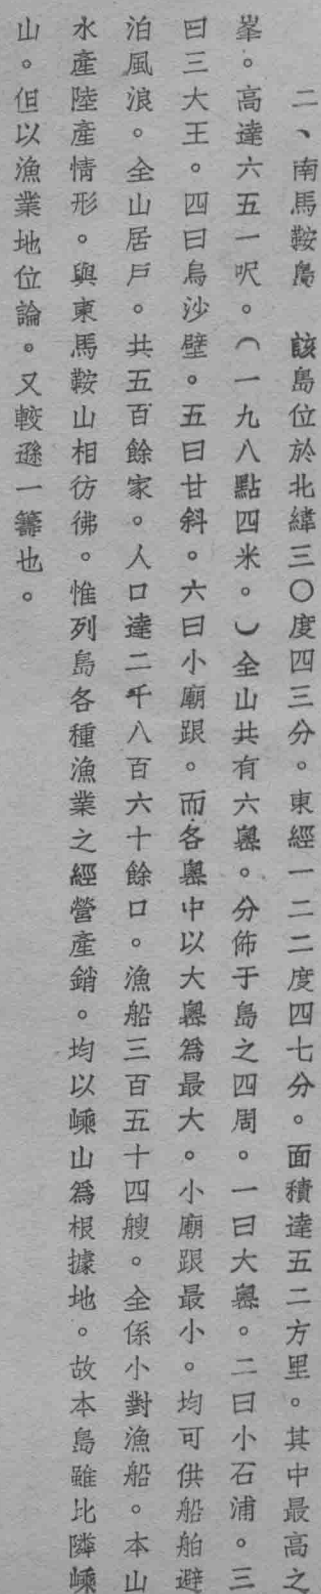 二、南馬鞍島　該島位於北緯三〇度四三分。東經一二二度四七分。面積達五二方里。其中最高之
峯。高達六五一呎。（一九八點四米。）全山共有六嶴。分佈于島之四周。一曰大嶴。二曰小石浦。三
曰三大王。四曰烏沙壁。五曰甘斜。六曰小廟跟。而各嶴中以大嶴爲最大。小廟跟最小。均可供船舶避
泊風浪。全山居戶。共五百餘家。人口達二千八百六十餘口。漁船三百五十四艘。全係小對漁船。本山
水產陸產情形。與東馬鞍山相彷彿。惟列島各種漁業之經營產銷。均以嵊山爲根據地。故本島雖比隣嵊
山。但以漁業地位論。又較遜一籌也。